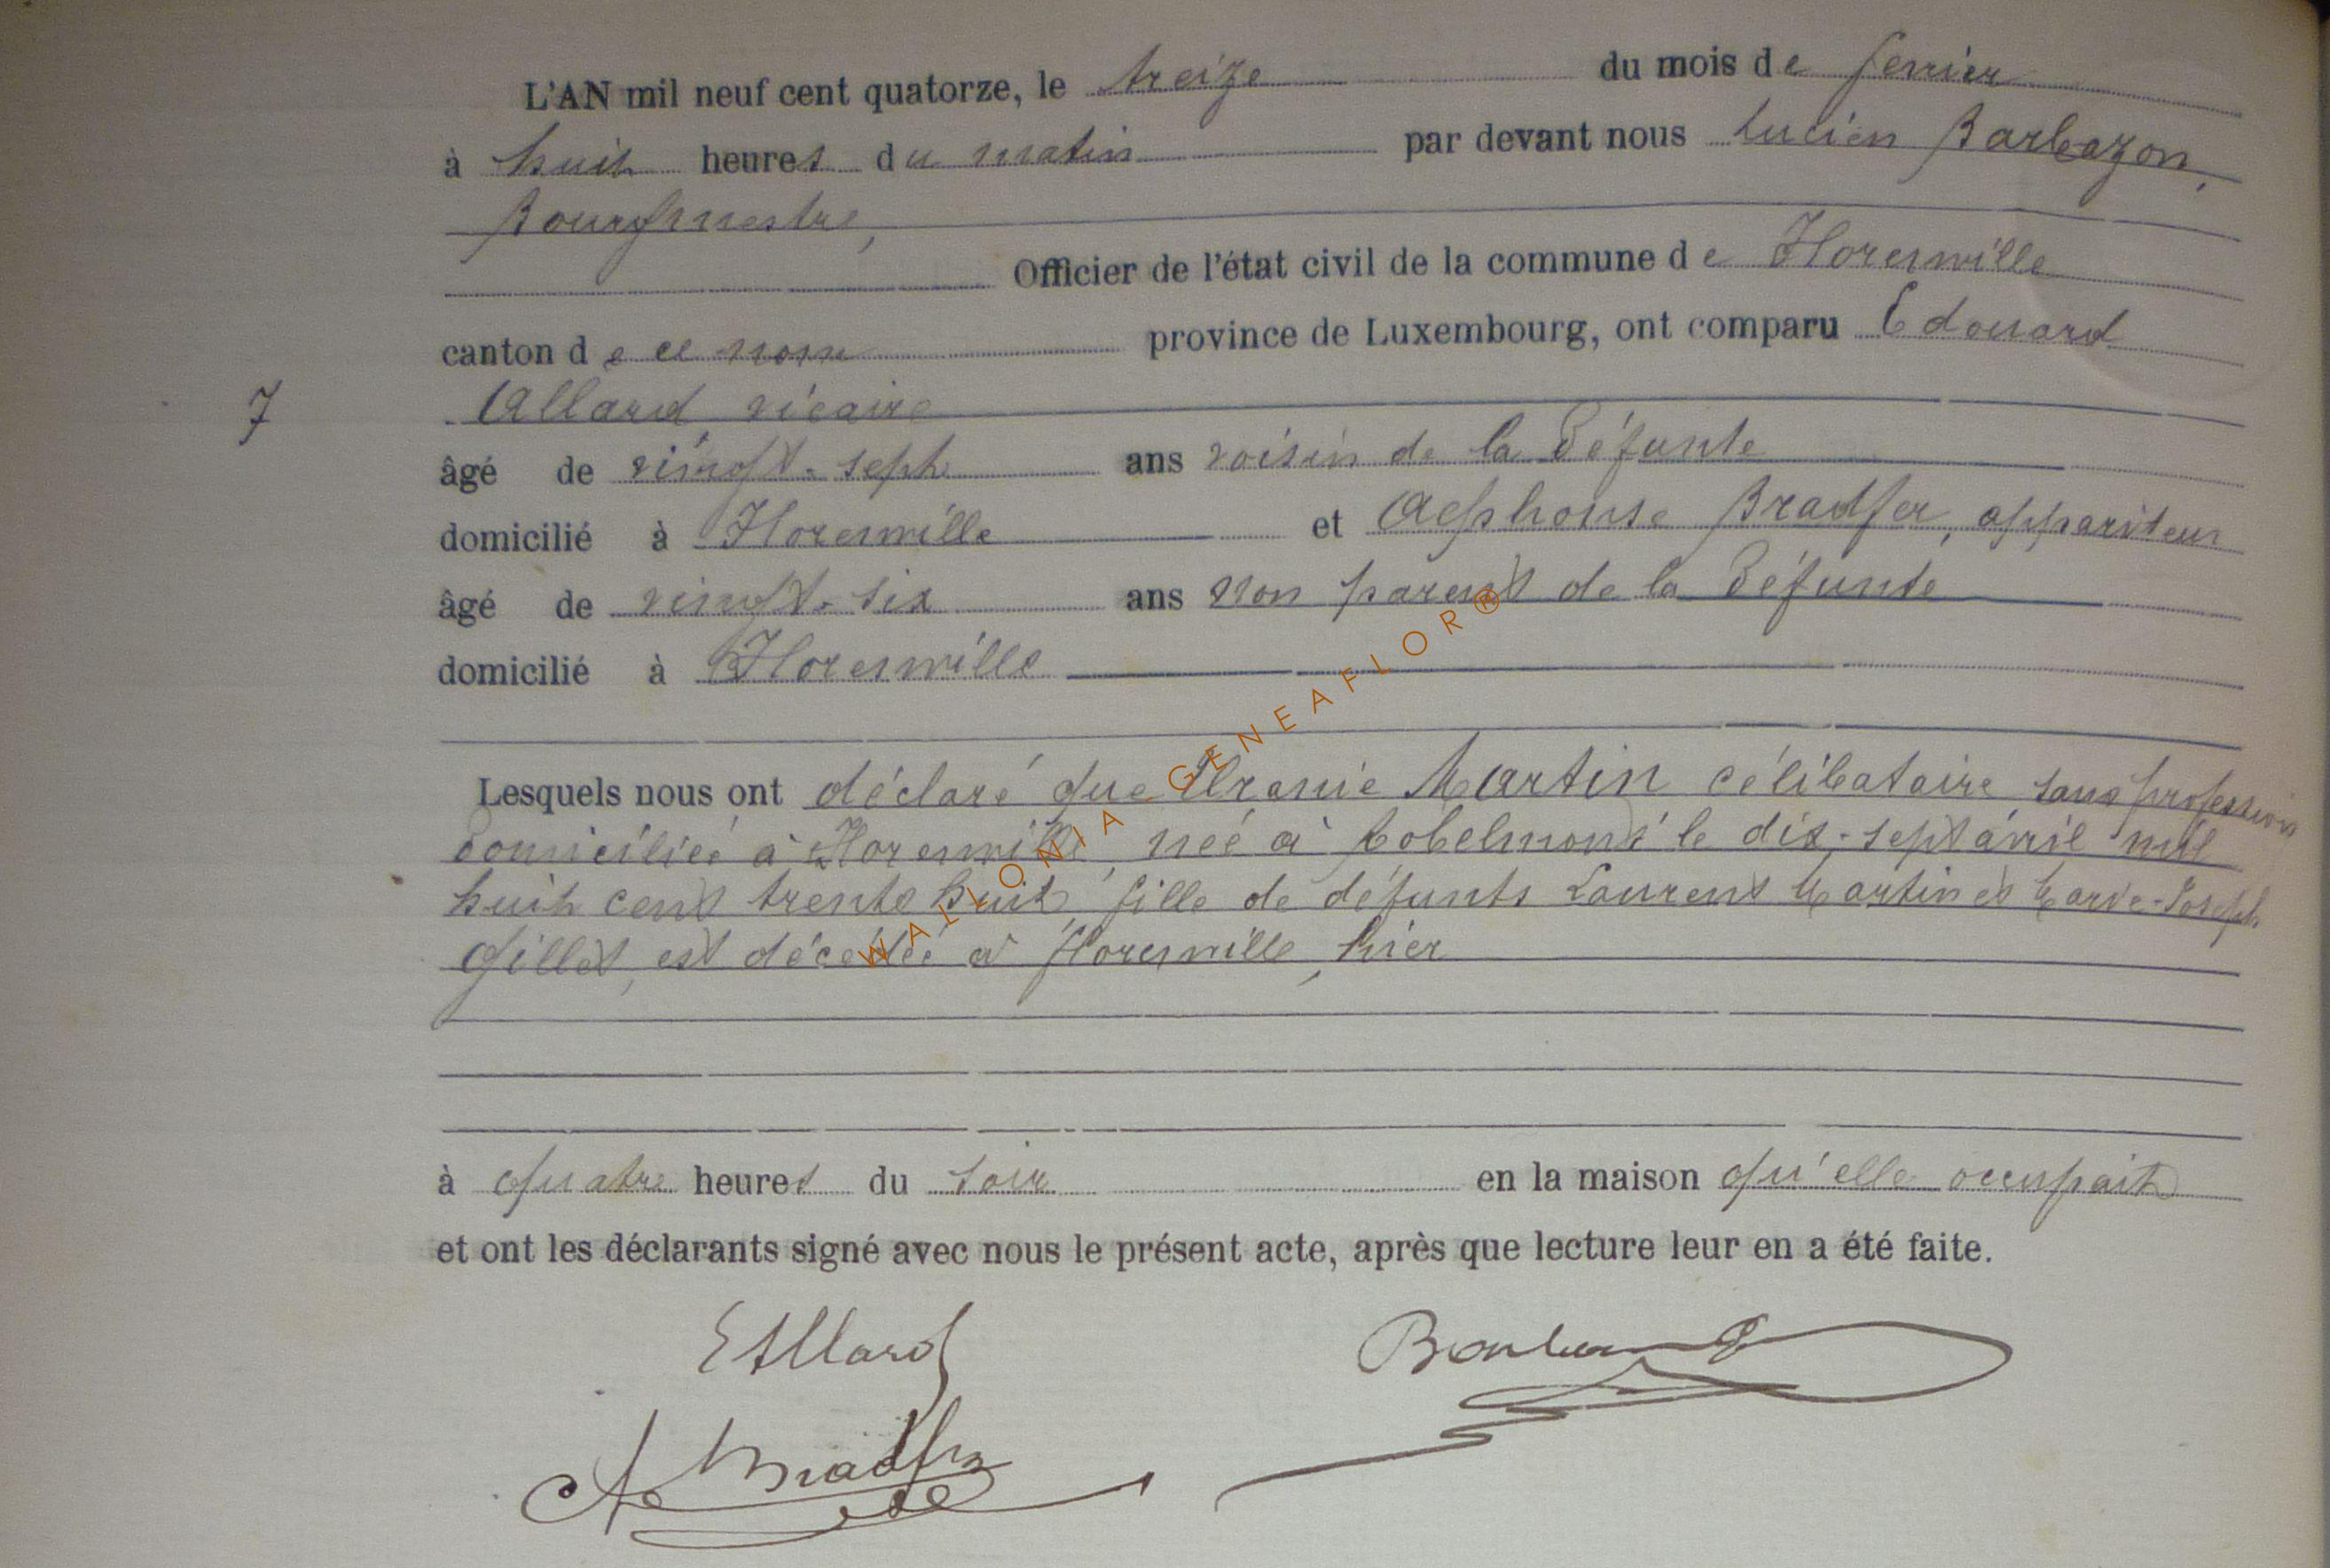 L'AN mil neuf cent quatorze, le treize du mois de fevrier
à huit heures du matin par devant nous Lucien Barbazon,
Bourgmestre,
Officier de l'état civil de la commune de Florenville
canton de ce nom province de Luxembourg, ont comparu Edouard
7 Allard vicaire
âgé de vingt-sept ans voisin de la défunte
domicilié à Florenville et Alphonse Bradfer, appariteur
âgé de vingt-six ans non parent de la défunte
domicilié à Florenville
Lesquels nous ont déclaré que Uranie Martin célibataire sans profession
domiciliée à Florenville, née à Robelmont le dix-sept avril mil
huit cent trente huit, fille de défunts Laurent Martin et Marie-Joseph
Gillet, est décédée à Florenville, hier
à quatre heures du soir en la maison qu'elle occupait
et ont les déclarants signé avec nous le présent acte, après que lecture leur en a été faite.
EAllard
A Bradfer
WALLONIA GENEAFLOR®